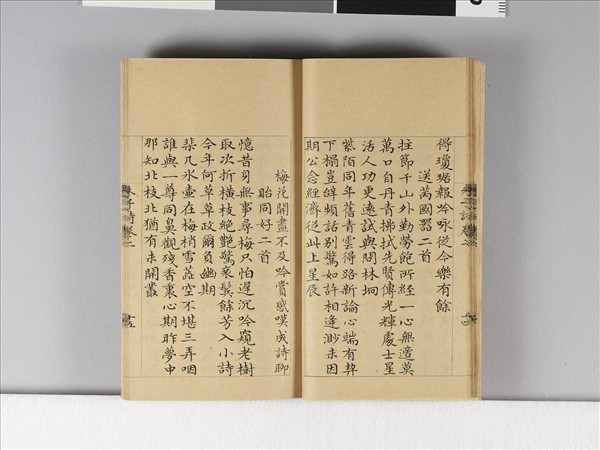 得瓊琚報吟咏從今樂有餘
送萬國器二首
拄節千山外勤勞飽所經一心無適莫
萬口自丹青拂拭先賢傳光輝處士星
活人功更遠試與問林坰
紫陌同年舊青雲得路新論心端有契
下榻豈辭頻話别驚如許相逢渺未因
期公念經濟從此上星辰
梅花開盡不及吟賞感嘆成詩聊
貽同好二首
憶昔身無事尋梅只怕遲沉吟窺老樹
取次折橫枝絶艷驚衰鬢餘芳入小詩
今年何草草政爾負幽期
棐几氷壺在梅梢雪蕋空不堪三弄咽
誰與一尊同鼻觀殘香裏心期昨夢中
那知北枝北猶有未開叢